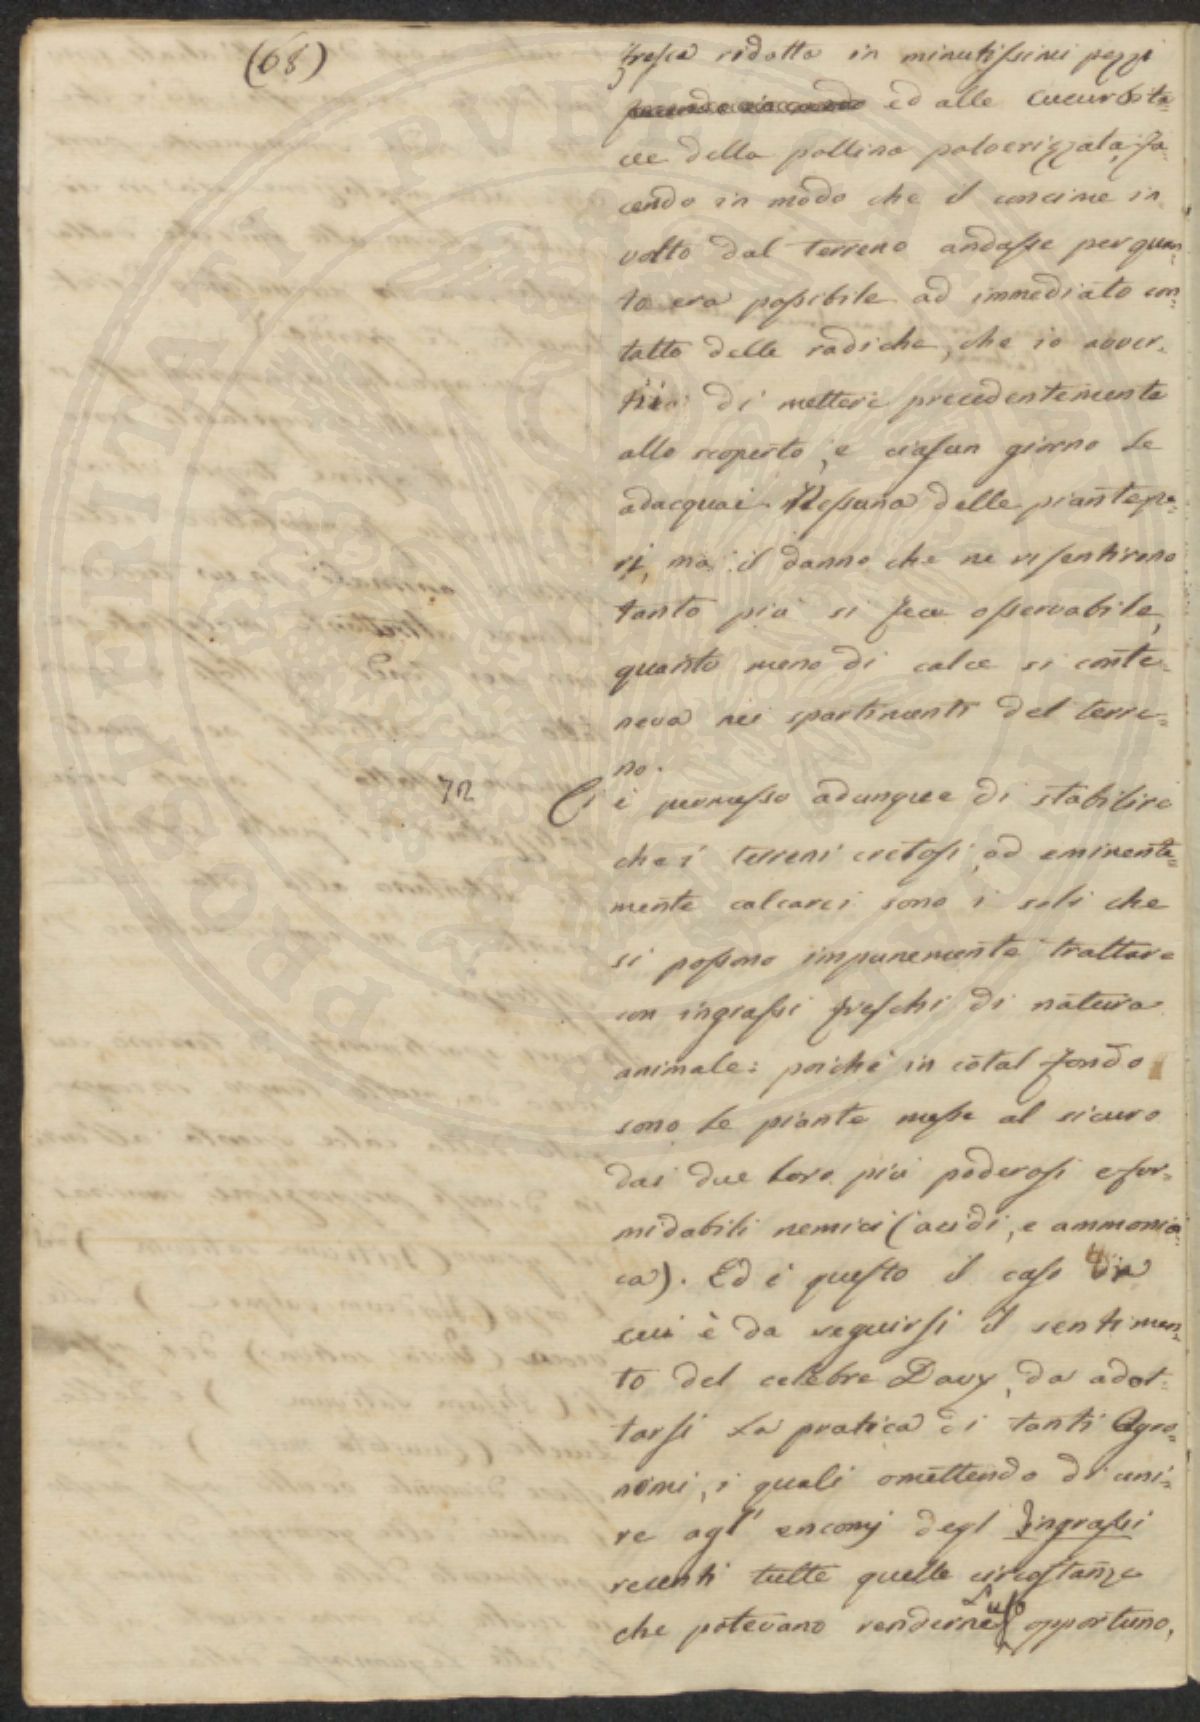 (68)
fresca ridotta in minutissimi pezzi
ed alle cucurbita=
cee della pollina polverizzata, fa=
cendo in modo che il concime in
volto dal terreno andasse per quan=
to era possibile ad immediato con=
tatto delle radiche, che io avver=
tii di mettere precedentemente
allo scoperto, e ciascun giorno le
adacquai. Nessuna delle piante pe=
rì, ma il danno che ne risentirono
tanto più si fece osservabile,
quanto meno di calce si conte=
neva nei spartimenti del terre=
no.
72 Ci è permesso adunque di stabilire
che i terreni cretosi, ed eminente=
mente calcarei sono i soli che
si possono impunemente trattare
con ingrassi freschi di natura
animale: poiché in cotal fondo
sono le piante messe al sicuro
dai due loro più poderosi e for=
midabili nemici (acidi, e ammonia=
ca). Ed è questo il caso in
cui è da seguirsi il sentimen=
to del celebre Davy, da adot=
tarsi la pratica di tanti Agro=
nomi, i quali omettendo di uni=
re agl' encomj degl' ingrassi
recenti tutte quelle circostanze
che potevano renderne l'uso opportuno,
PROSPERITATI PVBLICAE